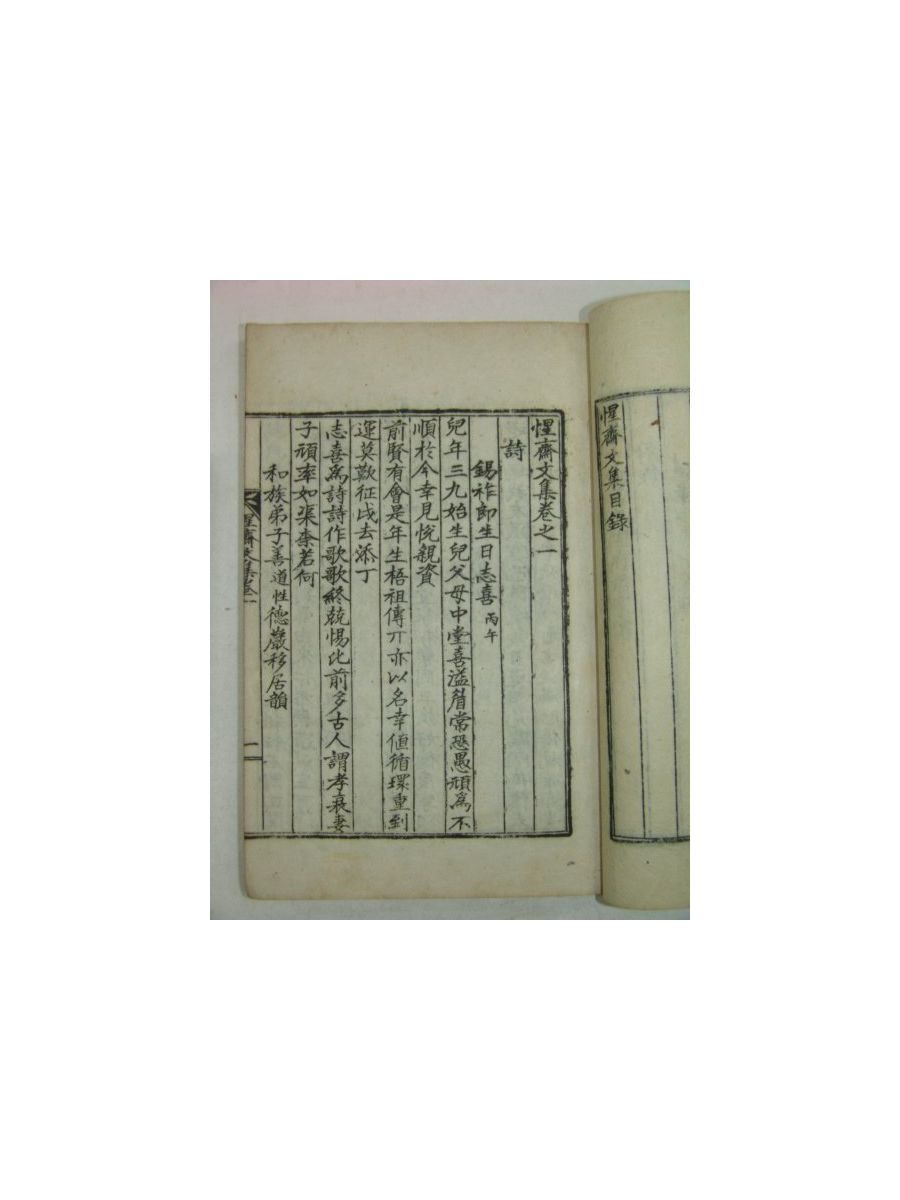 惺齋文集目錄
惺齋文集卷之一
詩
錫祚卽生日志喜 丙午
兒年三九始生兒父母中堂喜溢眉常恐愚頑爲不
順於今幸見悅親資
前賢有會是年生梧祖傳丌亦以名幸値循環重到
運莫歎征戍去添丁
志喜爲詩詩作歌歌終兢惕比前多古人謂孝衰妻
子頑率如渠柰若何
和族弟子善道性德巖移居韻
惺齋文集卷一
一